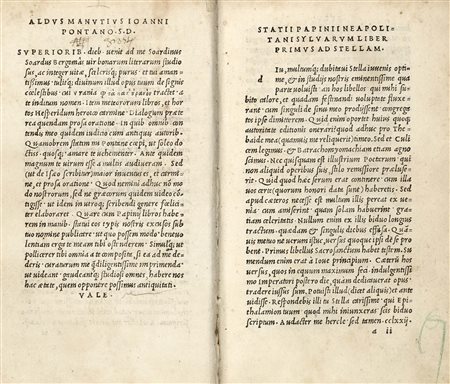 ALDVS MANVTIVS IOANNI
PONTANO .S.D.
SVPERIORIB. dieb. uenit ad me Suardinus
Suardus Bergomas uir bonarum literarum studio
sus, ac integer uitæ, scelerisq; purus, et tui aman-
tissimus: tulitq;
cœlestibus cui
te inditum nomen. Item meteororum libros, et hor
tos Hesperidum heroico carmine. Dialogum præte
rea quendam prosa oratione. In quib. omnib. conten-
dis meo quidem iudicio cum antiquis autorib.
Quamobrem statim mi Pontane cœpi, ut soleo do-
ctos quosq; amare te uehementer. Ante quidem
magnum te uirum esse à multis audiueram. Sed
(ut de Isæo scribitur) maior inuentus es, et carmi-
ne, et prosa oratione. Quod nemini adhuc nō mo-
do nostrorum, sed ne Græcorum quidem adhuc uideo cō-
tigisse. ut idem in utroq; scribendi genere fœlici-
ter elaboraret. Quare cum Papinij libros habe-
rem in manib. statui eos typis nostris excusos sub
tuo nomine publicare. ut quo possem modo beneuo
lentiam erga te meam tibi ostenderem. Simulq; ut
pollicerer tibi omnia à te composita, si ea ad me de-
deris: curaturum me q̄ diligentissime imprimenda.
ut uideant, gaudeantq; studiosi omnes, habere nos
hac ætate, quem opponere possimus antiquitati.
VALE.
STATII PAPINII NEAPOLI-
TANI SYLVARVM LIBER
PRIMVS AD STELLAM.
d Iu, multumq; dubitaui Stella iuuenis opti-
me, et in studijs nostris eminentissime qua
parte uoluisti, an hos libellos qui mihi
subito calore, et quadam festinandi uoluptate fluxe-
runt, cum singuli de sinu meo prodijssent congrega-
tos ipse dimitterem. Quid enim oportet huius quoq;
autoritate editionis onerari? quod adhuc pro The-
baide mea (quamuis me reliquerit) timeo. Sed et Culi-
cem legimus, et Batrachomyomachiam etiam agno-
scimus. Nec quisquam est illustrium Poetarum qui
non aliquid operibus suis stilo remissiore prælu-
serit. Quid quod hæc serum erat continere, cum illa
uos certe (quorum honori data sunt) haberetis. Sed
apud cæteros necesse est multum illis pereat ex ue-
nia. cum amiserint quam solam habuerint gratiam
celeritatis. Nullum enim ex illis biduo longius
tractum. quædam et singulis diebus effusa. Quā
metuo ne uerum istuc, uersus quoque ipsi de se pro-
bent. Primus libellus Sacrosanctum habet testem. Su-
mendum enim erat à Ioue principium. Centum hos
uersus, quos in equum maximum feci, indulgentissi-
mo Imperatori postero die, quam dedicauerat opus
tradere iussus sum. Potuisti illud (dicet aliquis) et ante
uidisse. Respondebis illi tu Stella carissime: qui Epi-
thalamion tuum quod mihi iniunxeras scis biduo
scriptum. Audacter me hercle, sed tamen
a ii